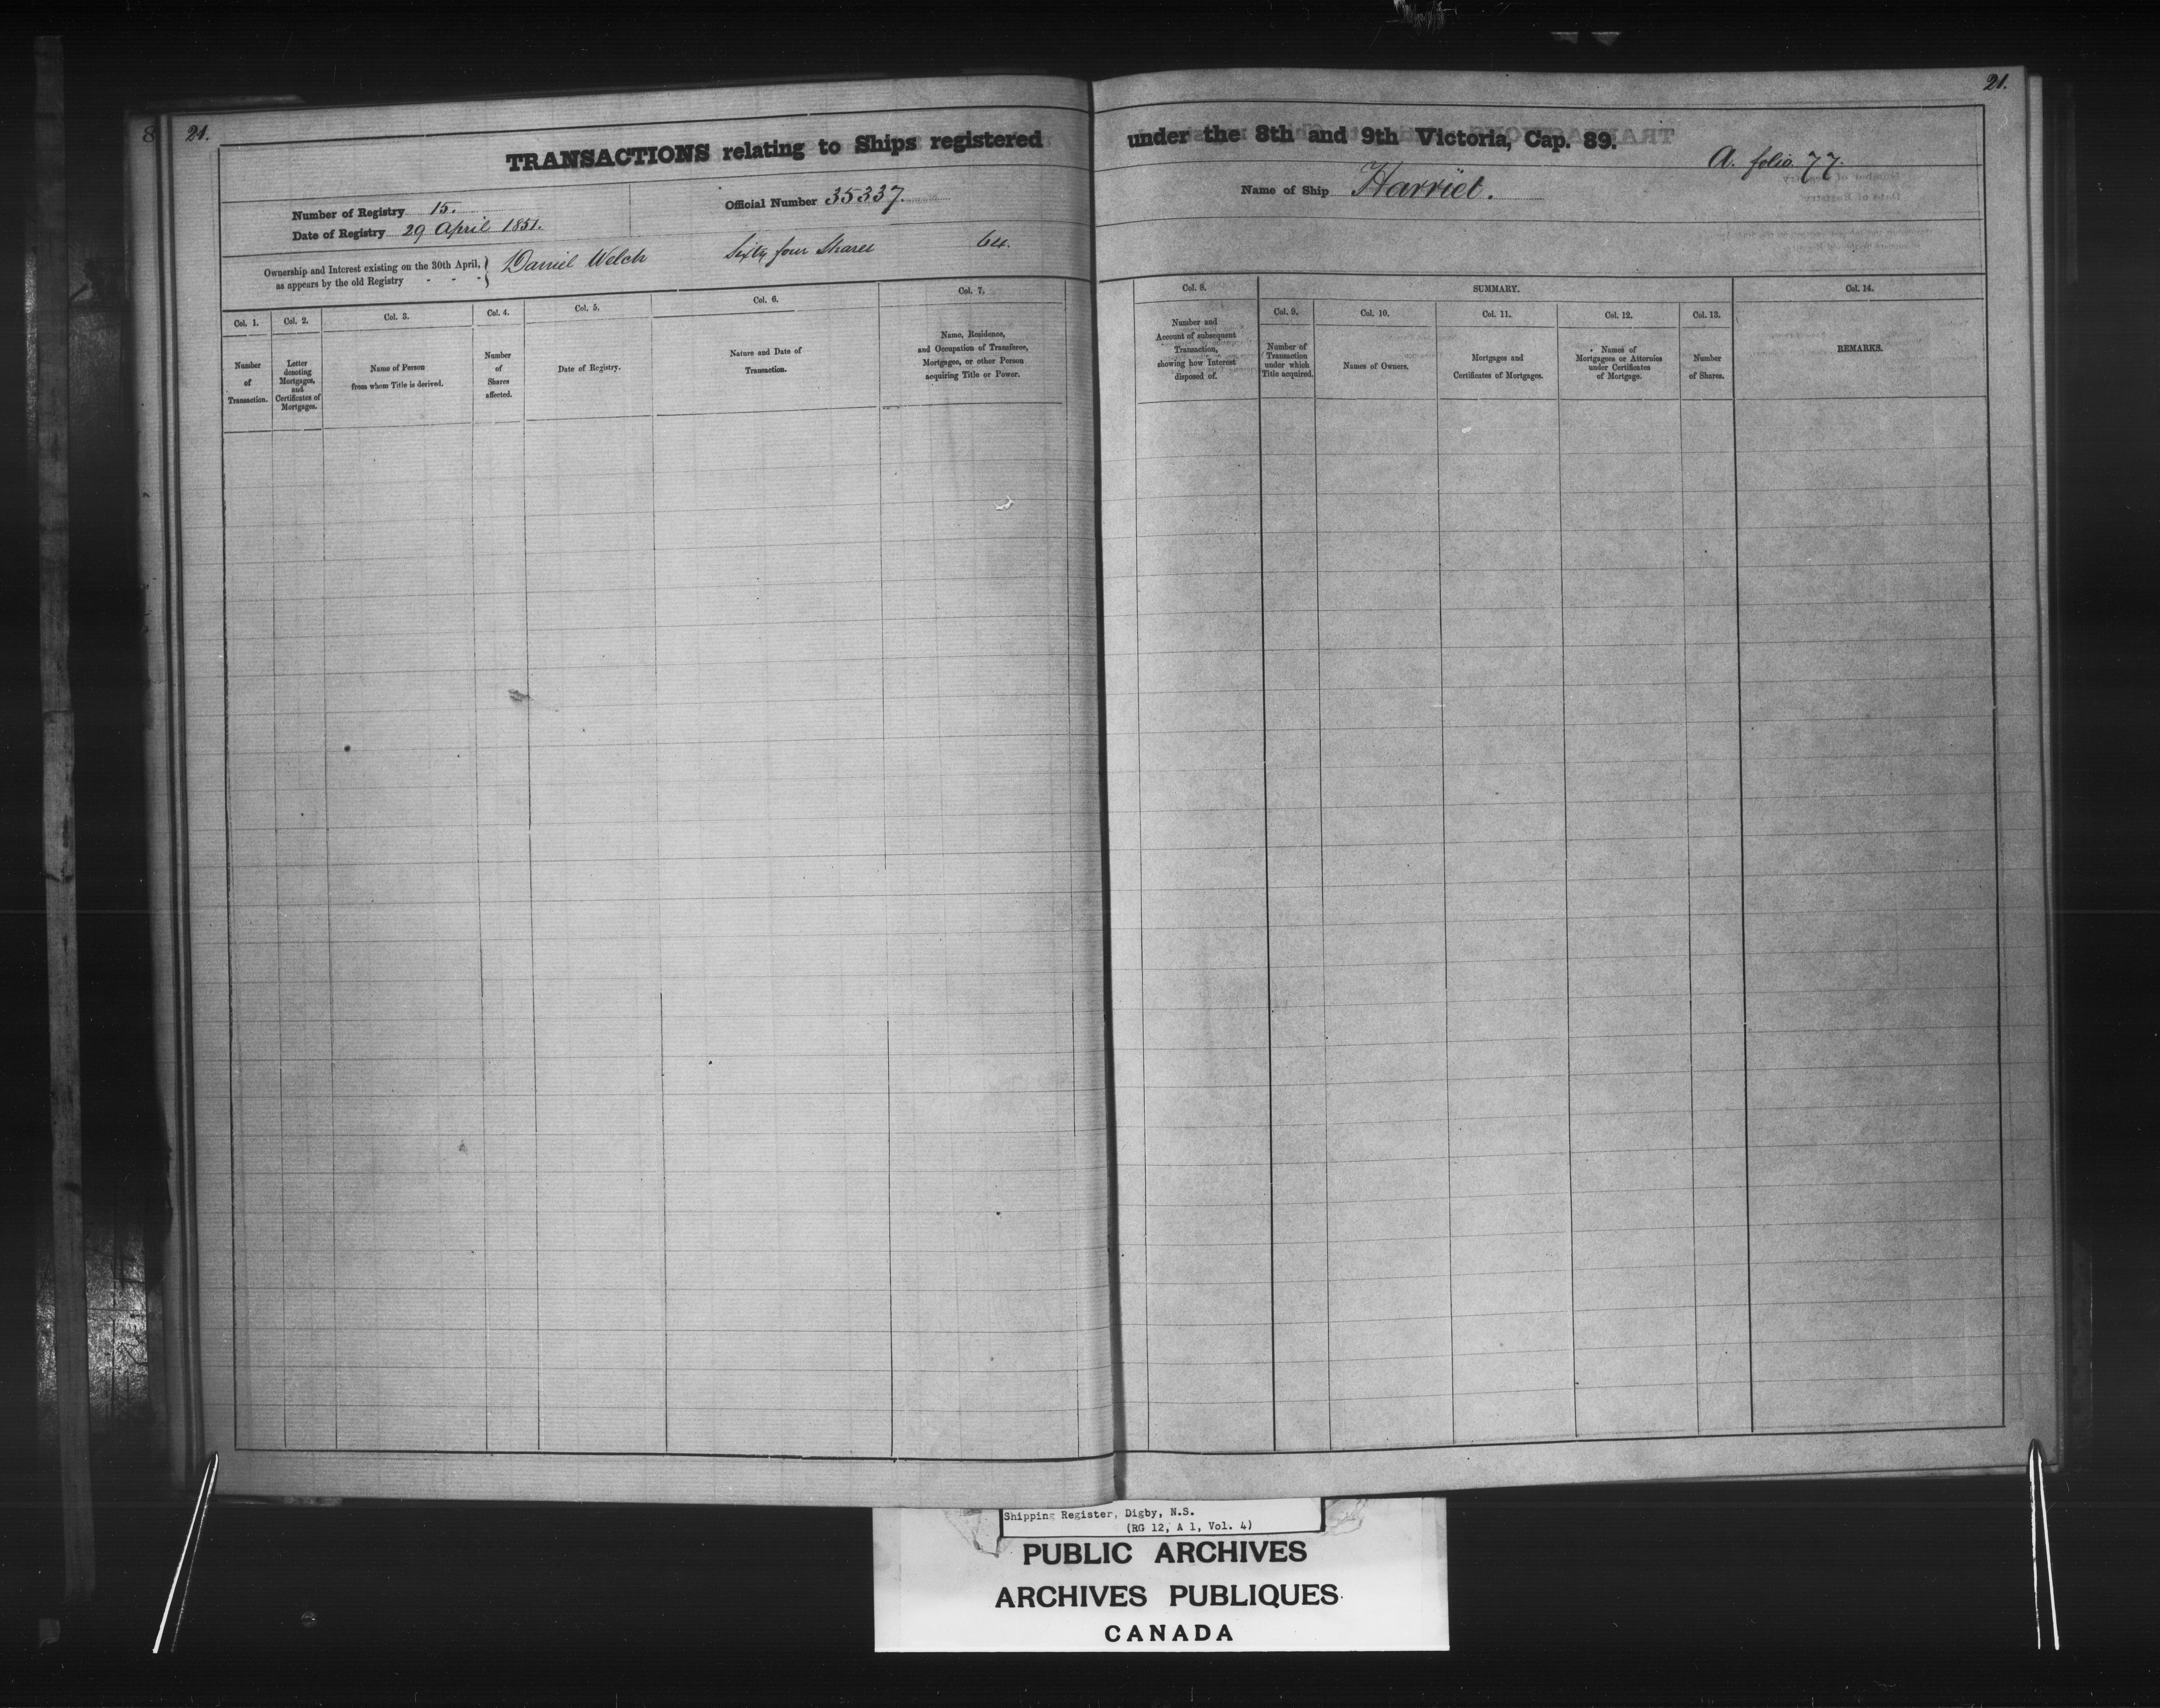 8
21.
21.
TRANSACTIONS relating to Ships registered under the 8th and 9th Victoria, Cap. 89.
A. folio 77.
Number of Registry 15.
Official Number 35337.
Name of Ship Harriet.
Date of Registry 29 April 1851.
Ownership and Interest existing on the 30th April, as appears by the old Registry - - -
Daniel Welch Sixty four Shares 64.
Col. 1.
Number
of
Transaction.
Col. 2.
Letter
denoting
Mortgages,
and
Certificates of
Mortgages.
Col. 3.
Name of Person
from whom Title is derived.
Col. 4.
Number
of
Shares
affected.
Col. 5.
Date of Registry.
Col. 6.
Nature and Date of
Transaction.
Col. 7.
Name, Residence,
and Occupation of Transferee,
Mortgagee, or other Person
acquiring Title or Power.
Col. 8.
Number and
Account of subsequent
Transaction,
showing how Interest
disposed of.
SUMMARY.
Col. 9.
Number of
Transaction
under which
Title acquired.
Col. 10.
Names of Owners.
Col. 11.
Mortgages and
Certificates of Mortgages.
Col. 12.
Names of
Mortgagees or Attornies
under Certificates
of Mortgage.
Col. 13.
Number
of Shares.
Col. 14.
REMARKS.
Shipping Register, Digby, N.S.
(RG 12, A 1, Vol. 4)
PUBLIC ARCHIVES
ARCHIVES PUBLIQUES
CANADA